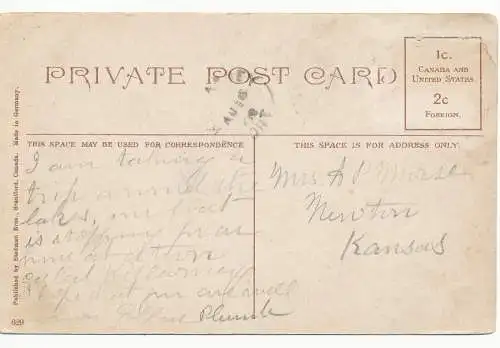 PRIVATE POST CARD
1c.
CANADA AND
UNITED STATES
2c
FOREIGN.
THIS SPACE MAY BE USED FOR CORRESPONDENCE
THIS SPACE IS FOR ADDRESS ONLY
Published by Stedman Bros., Brantford, Canada. Made in Germany.
I am taking a
trip around the
lakes, our boat
is stopping for a
at
Killarney
I hope you are well
Plumb
Mrs A P Morse
Newton
Kansas
629